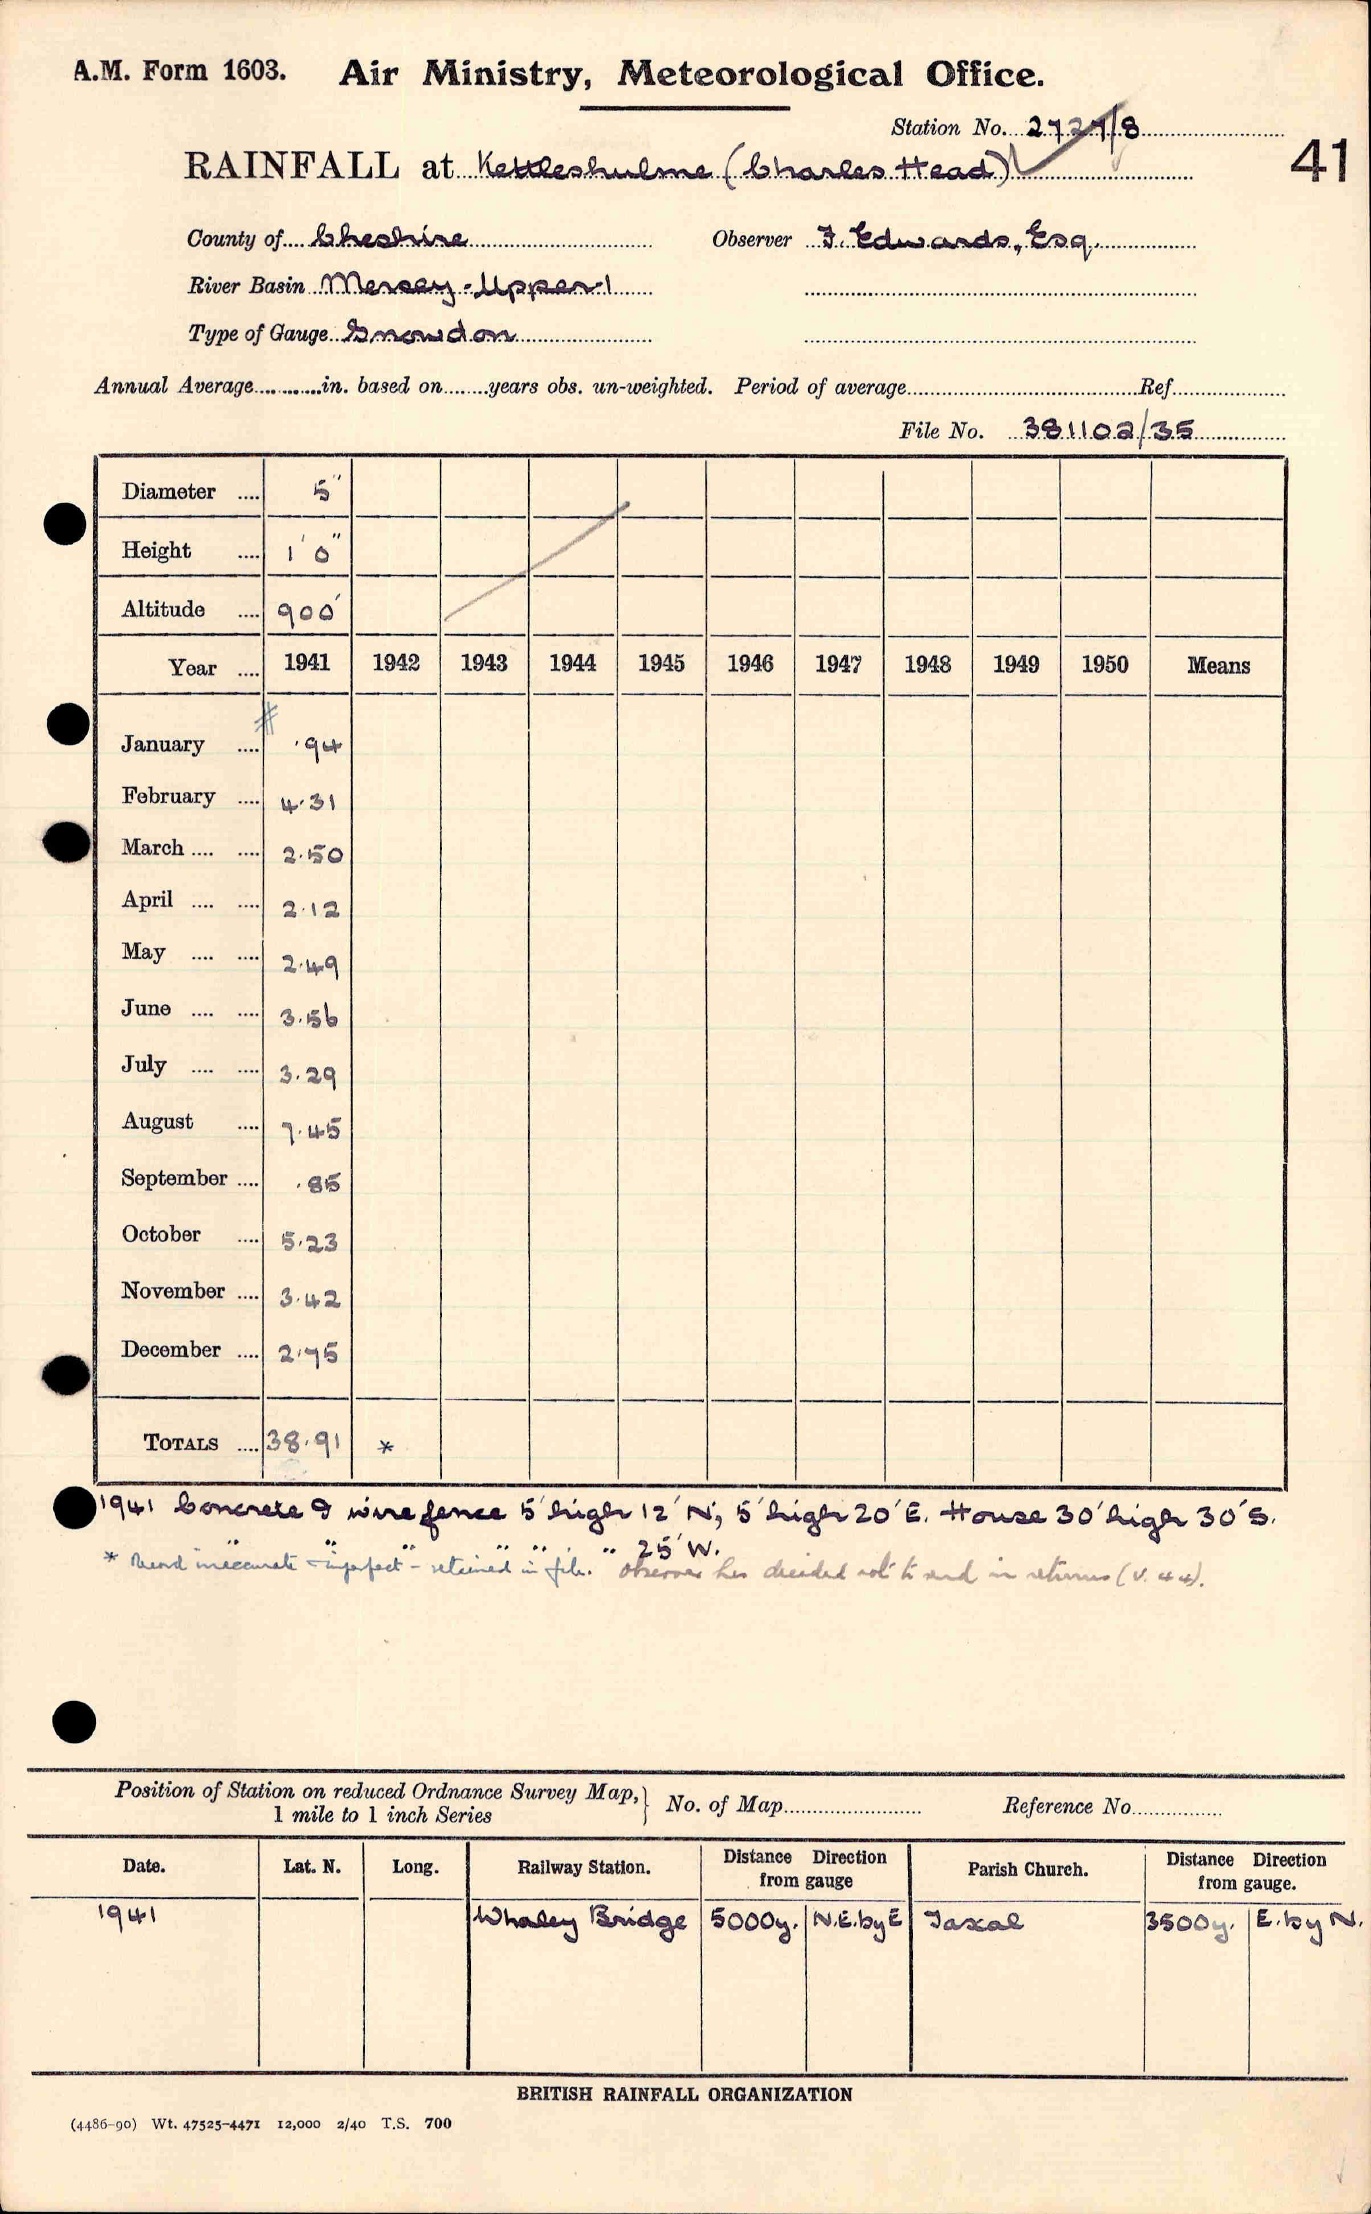 A.M. Form 1603. Air Ministry, Meteorological Office.
Station No. 2727/8
41
RAINFALL at Kettleshulme (Charles Head)
County of Cheshire Observer F. Edwards, Esq.
River Basin Mersey-Upper-1
Type of Gauge Snowdon
Annual Average..........in. based on.......years obs. un-weighted. Period of average..........Ref..........
File No. 381102/35
Diameter .... 5"
Height .... 1' 0"
Altitude .... 900'
Year .... 1941 1942 1943 1944 1945 1946 1947 1948 1949 1950 Means
#
January .... ·94
February .... 4·31
March .... .... 2·50
April .... .... 2·12
May .... .... 2·49
June .... .... 3·56
July .... .... 3·29
August .... 7·45
September .... ·85
October .... 5·23
November .... 3·42
December .... 2·75
TOTALS .... 38·91 *
1941 Concrete & wire fence 5' high 12' N, 5' high 20' E. House 30' high 30' S.
" " " " " 25' W.
* Record inaccurate & imperfect - retained in file. Observer has decided not to send in returns (V. 44).
Position of Station on reduced Ordnance Survey Map, } No. of Map.......... Reference No..........
1 mile to 1 inch Series
Date. Lat. N. Long. Railway Station. Distance Direction from gauge Parish Church. Distance Direction from gauge.
1941 Whaley Bridge 5000y. N.E. by E Taxal 3500y. E. by N.
BRITISH RAINFALL ORGANIZATION
(4486-90) Wt. 47525-4471 12,000 2/40 T.S. 700